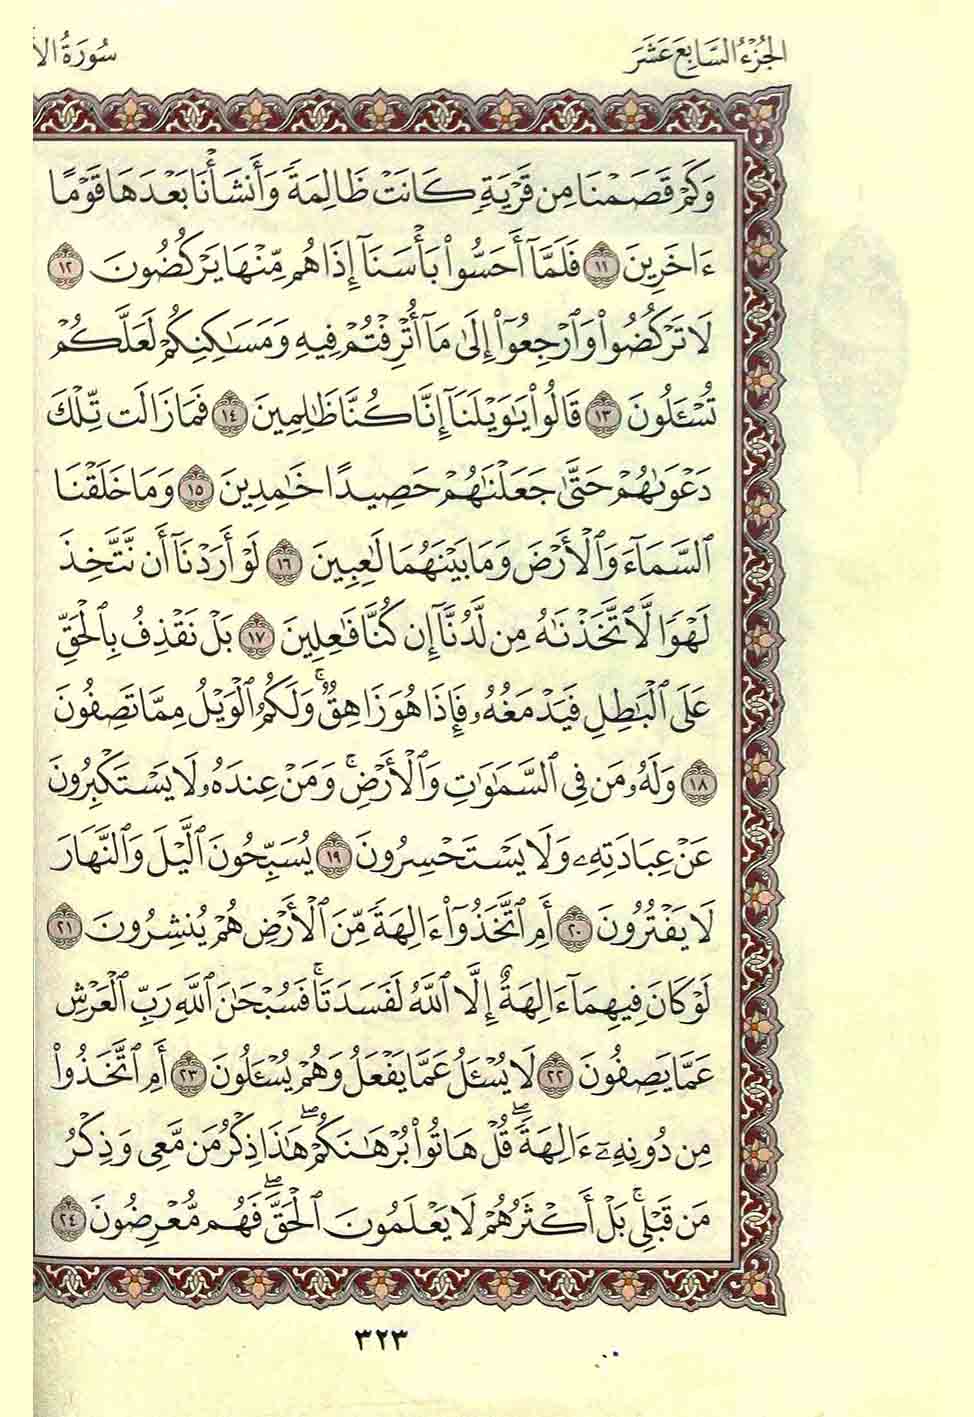 الجزء السابع عشر
سورة الأ
وَكَمْ قَصَمْنَا مِن قَرْيَةٍ كَانَتْ ظَالِمَةً وَأَنشَأْنَا بَعْدَهَا قَوْمًا
ءَاخَرِينَ ١١ فَلَمَّآ أَحَسُّوا۟ بَأْسَنَآ إِذَا هُم مِّنْهَا يَرْكُضُونَ ١٢
لَا تَرْكُضُوا۟ وَٱرْجِعُوٓا۟ إِلَىٰ مَآ أُتْرِفْتُمْ فِيهِ وَمَسَٰكِنِكُمْ لَعَلَّكُمْ
تُسْـَٔلُونَ ١٣ قَالُوا۟ يَٰوَيْلَنَآ إِنَّا كُنَّا ظَٰلِمِينَ ١٤ فَمَا زَالَت تِّلْكَ
دَعْوَىٰهُمْ حَتَّىٰ جَعَلْنَٰهُمْ حَصِيدًا خَٰمِدِينَ ١٥ وَمَا خَلَقْنَا
ٱلسَّمَآءَ وَٱلْأَرْضَ وَمَا بَيْنَهُمَا لَٰعِبِينَ ١٦ لَوْ أَرَدْنَآ أَن نَّتَّخِذَ
لَهْوًا لَّٱتَّخَذْنَٰهُ مِن لَّدُنَّآ إِن كُنَّا فَٰعِلِينَ ١٧ بَلْ نَقْذِفُ بِٱلْحَقِّ
عَلَى ٱلْبَٰطِلِ فَيَدْمَغُهُۥ فَإِذَا هُوَ زَاهِقٌ ۚ وَلَكُمُ ٱلْوَيْلُ مِمَّا تَصِفُونَ
١٨ وَلَهُۥ مَن فِى ٱلسَّمَٰوَٰتِ وَٱلْأَرْضِ ۚ وَمَنْ عِندَهُۥ لَا يَسْتَكْبِرُونَ
عَنْ عِبَادَتِهِۦ وَلَا يَسْتَحْسِرُونَ ١٩ يُسَبِّحُونَ ٱلَّيْلَ وَٱلنَّهَارَ
لَا يَفْتُرُونَ ٢٠ أَمِ ٱتَّخَذُوٓا۟ ءَالِهَةً مِّنَ ٱلْأَرْضِ هُمْ يُنشِرُونَ ٢١
لَوْ كَانَ فِيهِمَآ ءَالِهَةٌ إِلَّا ٱللَّهُ لَفَسَدَتَا ۚ فَسُبْحَٰنَ ٱللَّهِ رَبِّ ٱلْعَرْشِ
عَمَّا يَصِفُونَ ٢٢ لَا يُسْـَٔلُ عَمَّا يَفْعَلُ وَهُمْ يُسْـَٔلُونَ ٢٣ أَمِ ٱتَّخَذُوا۟
مِن دُونِهِۦٓ ءَالِهَةً ۖ قُلْ هَاتُوا۟ بُرْهَٰنَكُمْ ۖ هَٰذَا ذِكْرُ مَن مَّعِىَ وَذِكْرُ
مَن قَبْلِى ۗ بَلْ أَكْثَرُهُمْ لَا يَعْلَمُونَ ٱلْحَقَّ ۖ فَهُم مُّعْرِضُونَ ٢٤
٣٢٣